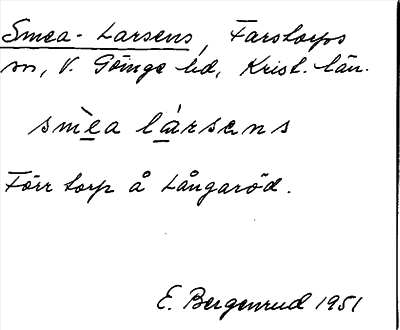 Smea-Larsens, Farstorps
sn, V. Göinge hd, Krist. län.
smèa lársens
Förr torp å Långaröd.
E. Bergenrud 1951